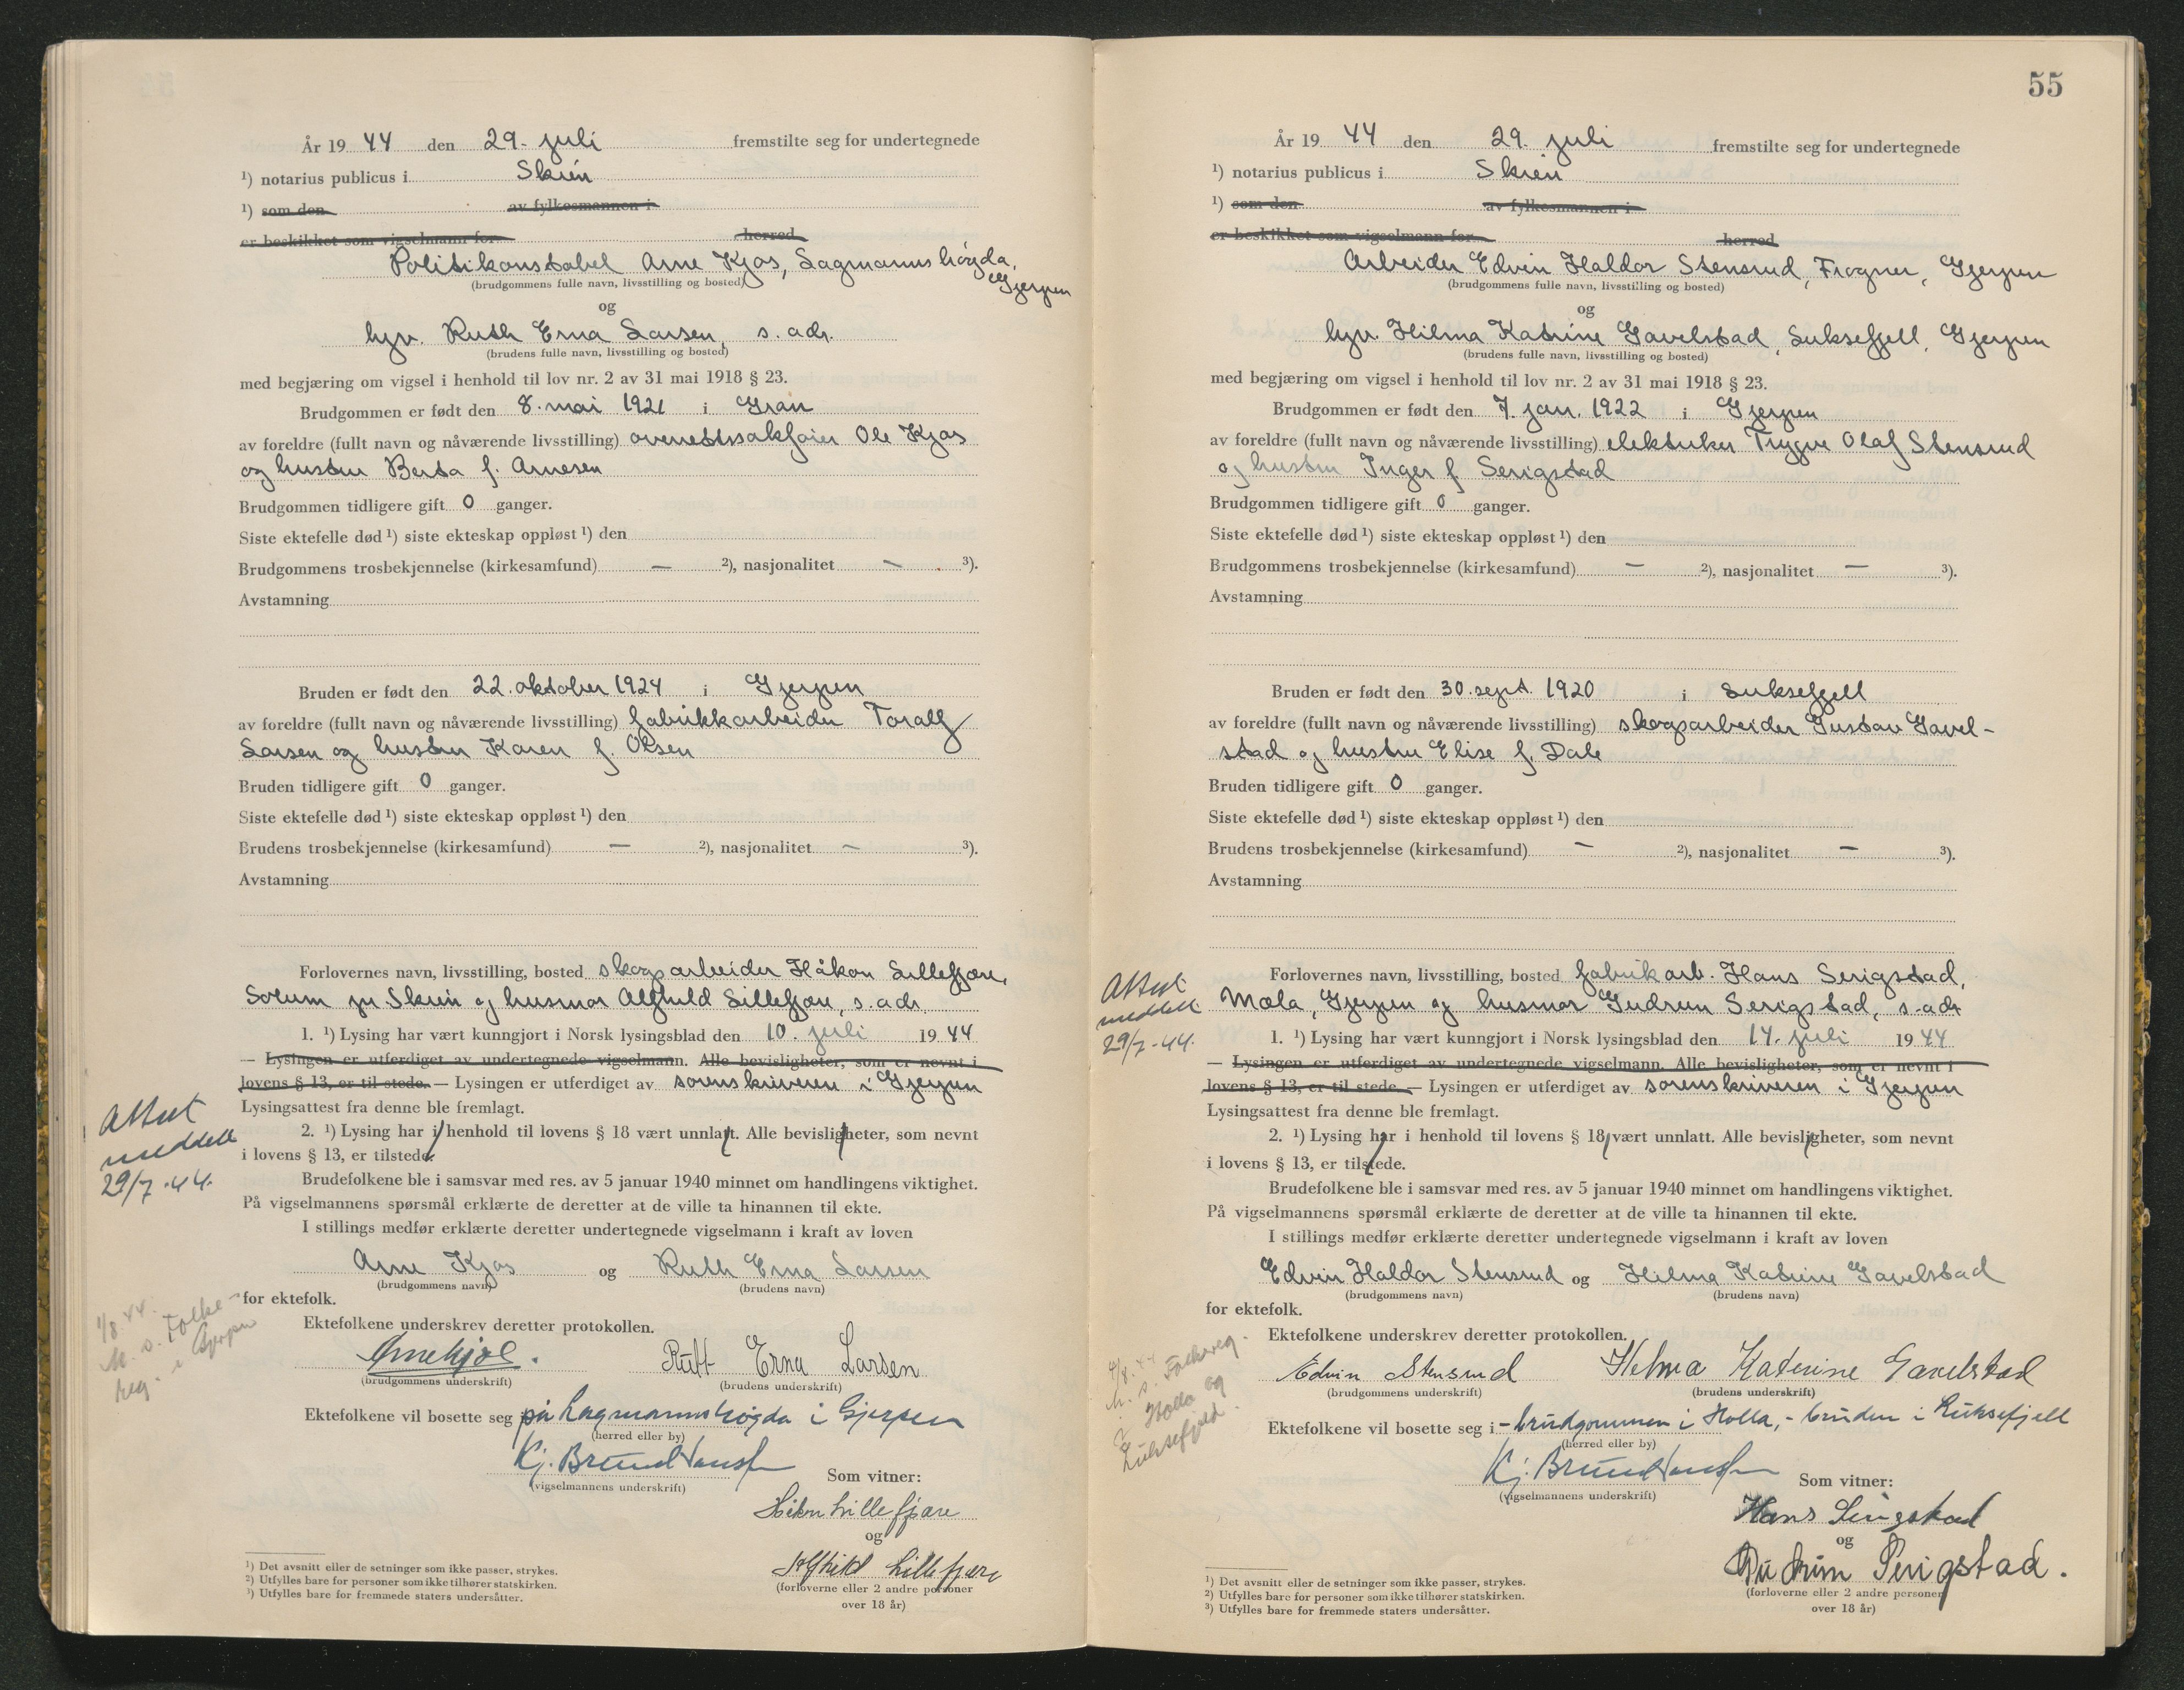 År 19 44 den 29. juli fremstilte seg for undertegnede
¹) notarius publicus i Skien
¹) som den av fylkesmannen i
er beskikket som vigselmann for herred
Politikonstabel Arne Kjos, Lagmannshøgda,
Gjerpen
(brudgommens fulle navn, livsstilling og bosted)
og
hyr. Ruth Erna Larsen, s. adr.
(brudens fulle navn, livsstilling og bosted)
med begjæring om vigsel i henhold til lov nr. 2 av 31 mai 1918 § 23.
Brudgommen er født den 8. mai 1921 i Gran
av foreldre (fullt navn og nåværende livsstilling) overrettssakfører Ole Kjos
og hustru Berta f. Arnesen
Brudgommen tidligere gift 0 ganger.
Siste ektefelle død ¹) siste ekteskap oppløst ¹) den
Brudgommens trosbekjennelse (kirkesamfund) — ²), nasjonalitet — ³).
Avstamning
Bruden er født den 22. oktober 1924 i Gjerpen
av foreldre (fullt navn og nåværende livsstilling) fabrikkarbeider Toralf
Larsen og hustru Karen f. Olsen
Bruden tidligere gift 0 ganger.
Siste ektefelle død ¹) siste ekteskap oppløst ¹) den
Brudens trosbekjennelse (kirkesamfund) — ²), nasjonalitet — ³).
Avstamning
Forlovernes navn, livsstilling, bosted skogsarbeider Håkon Lillefjære,
Solum pr. Skien og husmor Alfhild Lillefjære, s. adr.
1. ¹) Lysing har vært kunngjort i Norsk lysingsblad den 10. juli 19 44
— Lysingen er utferdiget av undertegnede vigselmann. Alle bevisligheter, som er nevnt i
lovens § 13, er til stede. — Lysingen er utferdiget av sorenskriveren i Gjerpen
Lysingsattest fra denne ble fremlagt.
2. ¹) Lysing har i henhold til lovens § 18 vært unnlatt. Alle bevisligheter, som nevnt
i lovens § 13, er tilstede.
Attest
meddelt
29/7-44.
Brudefolkene ble i samsvar med res. av 5 januar 1940 minnet om handlingens viktighet.
På vigselmannens spørsmål erklærte de deretter at de ville ta hinannen til ekte.
I stillings medfør erklærte deretter undertegnede vigselmann i kraft av loven
Arne Kjos og Ruth Erna Larsen
(brudgommens navn) (brudens navn)
for ektefolk.
1/8 44.
M. s. Folke-
reg. i Gjerpen
Ektefolkene underskrev deretter protokollen.
Arne Kjos. Ruth Erna Larsen
(brudgommens underskrift) (brudens underskrift)
Ektefolkene vil bosette seg på Lagmannshøgda i Gjerpen
(herred eller by)
Kj. Bruun Hanssen
(vigselmannens underskrift) Som vitner:
Håkon Lillefjære
og
Alfhild Lillefjære
(forloverne eller 2 andre personer
over 18 år)
¹) Det avsnitt eller de setninger som ikke passer, strykes.
²) Utfylles bare for personer som ikke tilhører statskirken.
³) Utfylles bare for fremmede staters undersåtter.
55
År 19 44 den 29. juli fremstilte seg for undertegnede
¹) notarius publicus i Skien
¹) som den av fylkesmannen i
er beskikket som vigselmann for herred
Arbeider Edvin Haldor Stensrud, Frogner, Gjerpen
(brudgommens fulle navn, livsstilling og bosted)
og
hyr. Hilma Katrine Gavelstad, Luksefjell, Gjerpen
(brudens fulle navn, livsstilling og bosted)
med begjæring om vigsel i henhold til lov nr. 2 av 31 mai 1918 § 23.
Brudgommen er født den 7. jan. 1922 i Gjerpen
av foreldre (fullt navn og nåværende livsstilling) elektriker Trygve Olaf Stensrud
og hustru Inger f. Serigstad
Brudgommen tidligere gift 0 ganger.
Siste ektefelle død ¹) siste ekteskap oppløst ¹) den
Brudgommens trosbekjennelse (kirkesamfund) — ²), nasjonalitet — ³).
Avstamning
Bruden er født den 30. sept. 1920 i Luksefjell
av foreldre (fullt navn og nåværende livsstilling) skogsarbeider Gustav Gavel-
stad og hustru Elise f. Dale
Bruden tidligere gift 0 ganger.
Siste ektefelle død ¹) siste ekteskap oppløst ¹) den
Brudens trosbekjennelse (kirkesamfund) — ²), nasjonalitet — ³).
Avstamning
Forlovernes navn, livsstilling, bosted fabrikarb. Hans Serigstad,
Mæla, Gjerpen og husmor Gudrun Serigstad, s. adr
Attest
meddelt
29/7-44.
1. ¹) Lysing har vært kunngjort i Norsk lysingsblad den 14. juli 19 44
— Lysingen er utferdiget av undertegnede vigselmann. Alle bevisligheter, som er nevnt i
lovens § 13, er til stede. — Lysingen er utferdiget av sorenskriveren i Gjerpen
Lysingsattest fra denne ble fremlagt.
2. ¹) Lysing har i henhold til lovens § 18 vært unnlatt. Alle bevisligheter, som nevnt
i lovens § 13, er tilstede.
Brudefolkene ble i samsvar med res. av 5 januar 1940 minnet om handlingens viktighet.
På vigselmannens spørsmål erklærte de deretter at de ville ta hinannen til ekte.
I stillings medfør erklærte deretter undertegnede vigselmann i kraft av loven
Edvin Haldor Stensrud og Hilma Katrine Gavelstad
(brudgommens navn) (brudens navn)
for ektefolk.
Ektefolkene underskrev deretter protokollen.
Edvin Stensrud Helma Katerine Gavelstad
(brudgommens underskrift) (brudens underskrift)
M. s. Folkereg.
Holla og
Luksefjeld.
Ektefolkene vil bosette seg i - brudgommen i Holla, - bruden i Luksefjell
(herred eller by)
Kj. Bruun Hanssen
(vigselmannens underskrift) Som vitner:
Hans Serigstad
og
Gudrun Serigstad.
(forloverne eller 2 andre personer
over 18 år)
¹) Det avsnitt eller de setninger som ikke passer, strykes.
²) Utfylles bare for personer som ikke tilhører statskirken.
³) Utfylles bare for fremmede staters undersåtter.